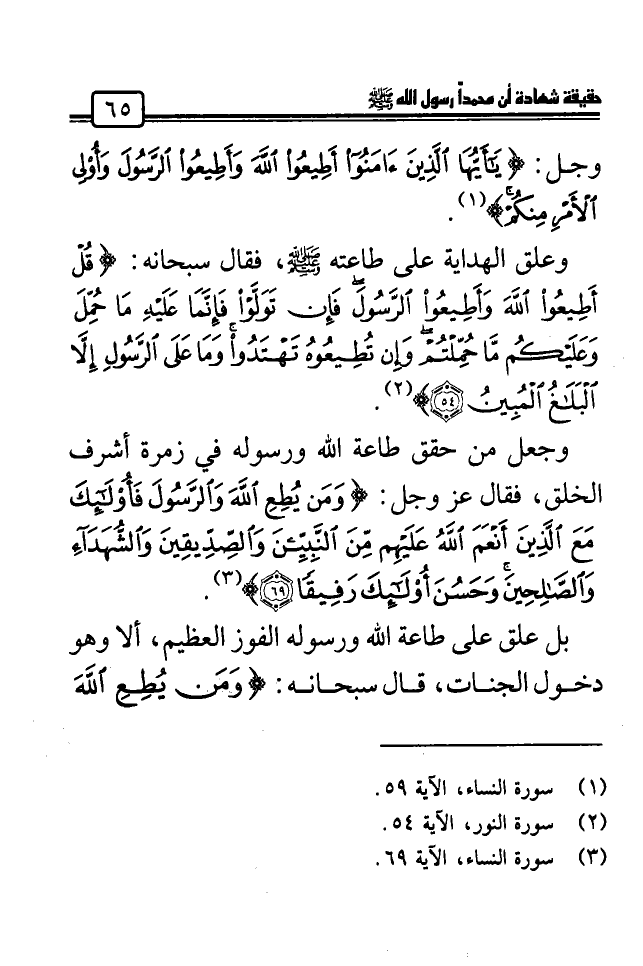 حقيقة شهادة أن محمداً رسول الله ﷺ
٦٥
وجل: ﴿ يَٰٓأَيُّهَا ٱلَّذِينَ ءَامَنُوٓا۟ أَطِيعُوا۟ ٱللَّهَ وَأَطِيعُوا۟ ٱلرَّسُولَ وَأُو۟لِى
ٱلْأَمْرِ مِنكُمْ ۖ﴾(١).
وعلق الهداية على طاعته ﷺ، فقال سبحانه: ﴿ قُلْ
أَطِيعُوا۟ ٱللَّهَ وَأَطِيعُوا۟ ٱلرَّسُولَ ۖ فَإِن تَوَلَّوْا۟ فَإِنَّمَا عَلَيْهِ مَا حُمِّلَ
وَعَلَيْكُم مَّا حُمِّلْتُمْ ۖ وَإِن تُطِيعُوهُ تَهْتَدُوا۟ ۚ وَمَا عَلَى ٱلرَّسُولِ إِلَّا
ٱلْبَلَٰغُ ٱلْمُبِينُ ٥٤﴾(٢).
وجعل من حقق طاعة الله ورسوله في زمرة أشرف
الخلق، فقال عز وجل: ﴿ وَمَن يُطِعِ ٱللَّهَ وَٱلرَّسُولَ فَأُو۟لَٰٓئِكَ
مَعَ ٱلَّذِينَ أَنْعَمَ ٱللَّهُ عَلَيْهِم مِّنَ ٱلنَّبِيِّـۧنَ وَٱلصِّدِّيقِينَ وَٱلشُّهَدَآءِ
وَٱلصَّٰلِحِينَ ۚ وَحَسُنَ أُو۟لَٰٓئِكَ رَفِيقًا ٦٩﴾(٣).
بل علق على طاعة الله ورسوله الفوز العظيم، ألا وهو
دخول الجنات، قال سبحانه: ﴿ وَمَن يُطِعِ ٱللَّهَ
(١) سورة النساء، الآية ٥٩.
(٢) سورة النور، الآية ٥٤.
(٣) سورة النساء، الآية ٦٩.